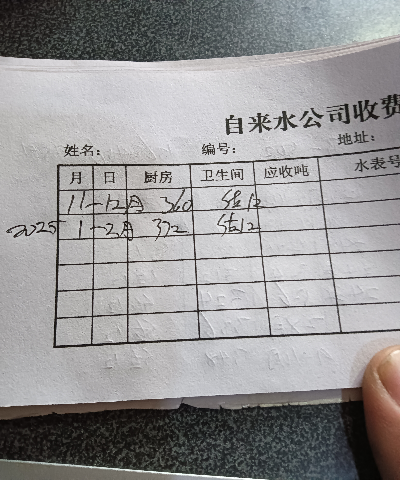 自来水公司收费
姓名： 编号： 地址：
月 日 厨房 卫生间 应收吨 水表号
11-12月 360 结12
2025 1-2月 372 结12